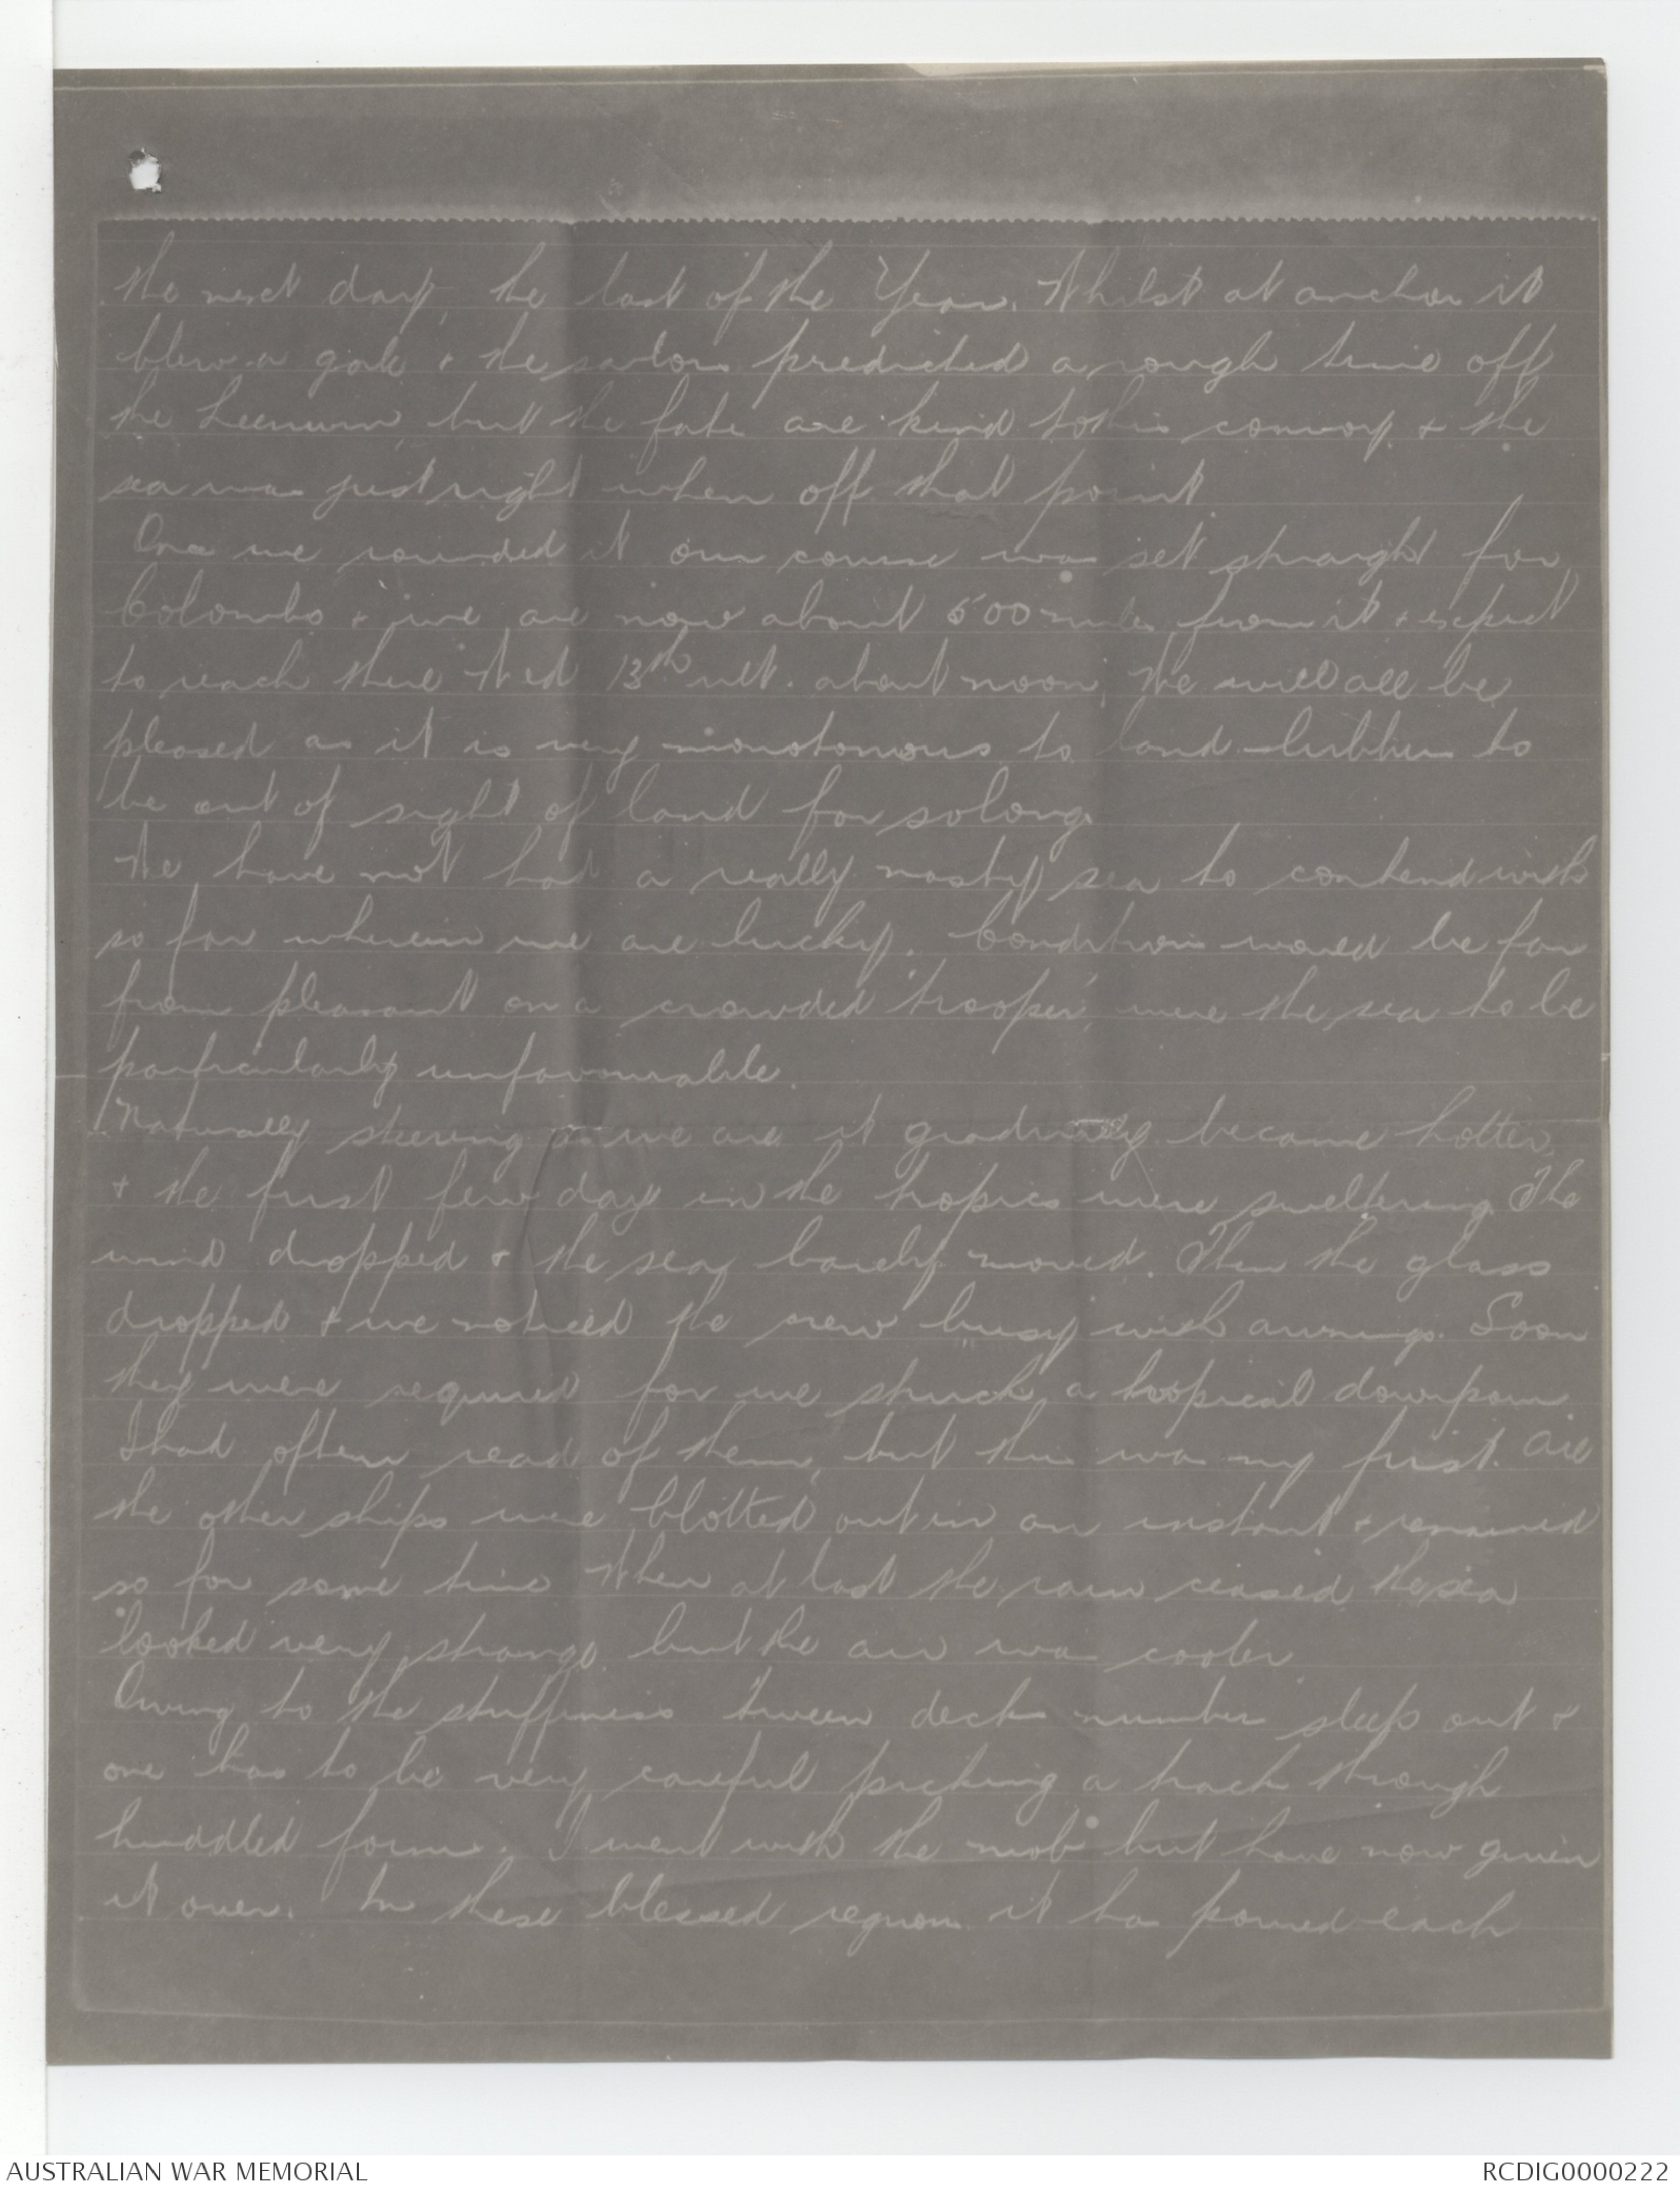 the next day, the last of the Year. Whilst at anchor it
blew a gale & the sailors predicted a rough time off
the Leeuwin, but the fates are kind to this convoy & the
sea was just right when off that point.
Once we rounded it our course was set straight for
Colombo & we are now about 500 miles from it & expect
to reach there Wed 13th ult. about noon. We will all be
pleased as it is very monotonous to land-lubbers to
be out of sight of land for so long.
We have not had a really nasty sea to contend with
so far wherein we are lucky. Conditions would be far
from pleasant on a crowded 'trooper' were the sea to be
particularly unfavourable.
Naturally steering as we are it gradually became hotter
& the first few days in the tropics were sweltering. The
wind dropped & the sea barely moved. Then the glass
dropped & we noticed the crew busy with awnings. Soon
they were required for we struck a tropical downpour.
I had often read of them, but this was my first. All
the other ships were blotted out in an instant & remained
so for some time. When at last the rain ceased the sea
looked very strange, but the air was cooler.
Owing to the stuffiness 'tween decks numbers sleep out &
one has to be very careful picking a track through
huddled forms. I went with the mob but have now given
it over. In these blessed regions it has poured each
AUSTRALIAN WAR MEMORIAL
RCDIG0000222